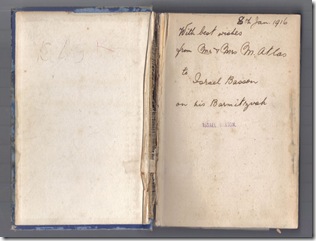 8th Jan 1916
With best wishes
from Mr & Mrs M. Atlas
to
Israel Bassen
on his Barmitzvah